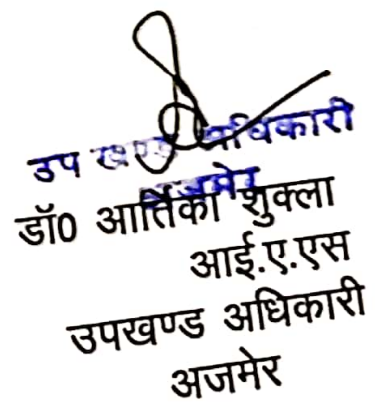 उप खण्ड अधिकारी
अजमेर
डॉ0 आर्तिका शुक्ला
आई.ए.एस
उपखण्ड अधिकारी
अजमेर